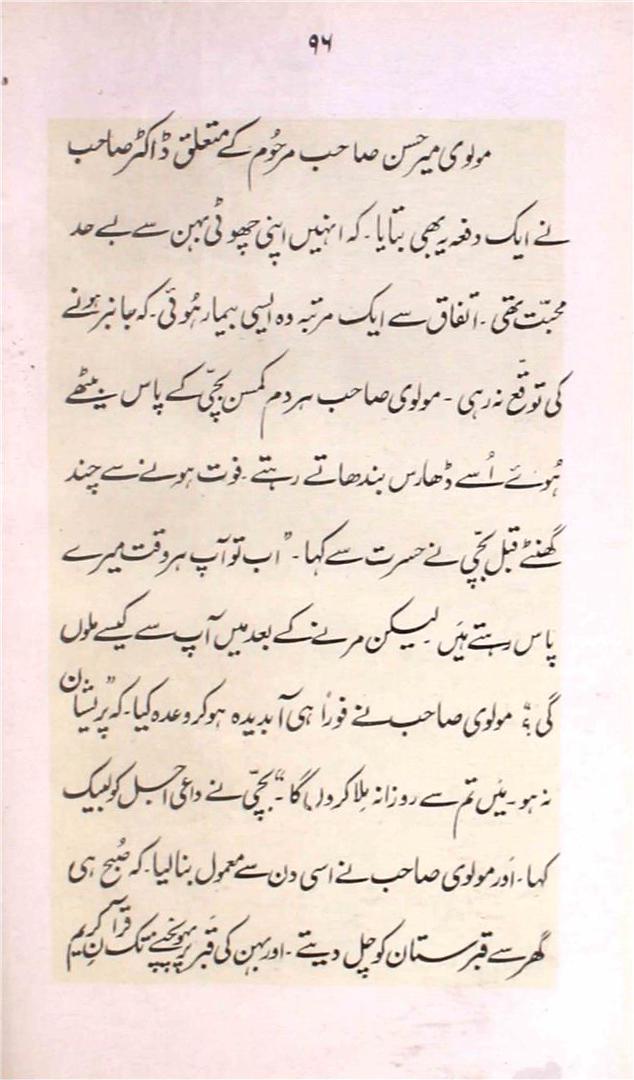 ۹۶
مولوی میر حسن صاحب مرحُوم کے متعلق ڈاکٹر صاحب
نے ایک دفعہ یہ بھی بتایا ۔ کہ انہیں اپنی چھوٹی بہن سے بے حد
محبّت تھی ۔ اتفاق سے ایک مرتبہ وہ ایسی بیمار ہُوئی ۔ کہ جانبر ہونے
کی توقّع نہ رہی ۔ مولوی صاحب ہر دم کمسن بچّی کے پاس بیٹھے
ہُوئے اُسے ڈھارس بندھاتے رہتے ۔ فوت ہونے سے چند
گھنٹے قبل بچّی نے حسرت سے کہا ۔ " اب تو آپ ہر وقت میرے
پاس رہتے ہَیں لیکن مرنے کے بعد میں آپ سے کیسے ملوں
گی ؟" مولوی صاحب نے فوراً ہی آبدیدہ ہو کر وعدہ کیا ۔ کہ "پریشان
نہ ہو ۔ مَیں تم سے روزانہ مِلا کروں گا ۔" بچّی نے داعی اجل کو لبیک
کہا ۔ اَور مولوی صاحب نے اسی دن سے معمول بنا لیا ۔ کہ صُبح ہی
گھر سے قبرستان کو چل دیتے ۔ اور بہن کی قبر پر پہونچنے تک قرآنِ کریم